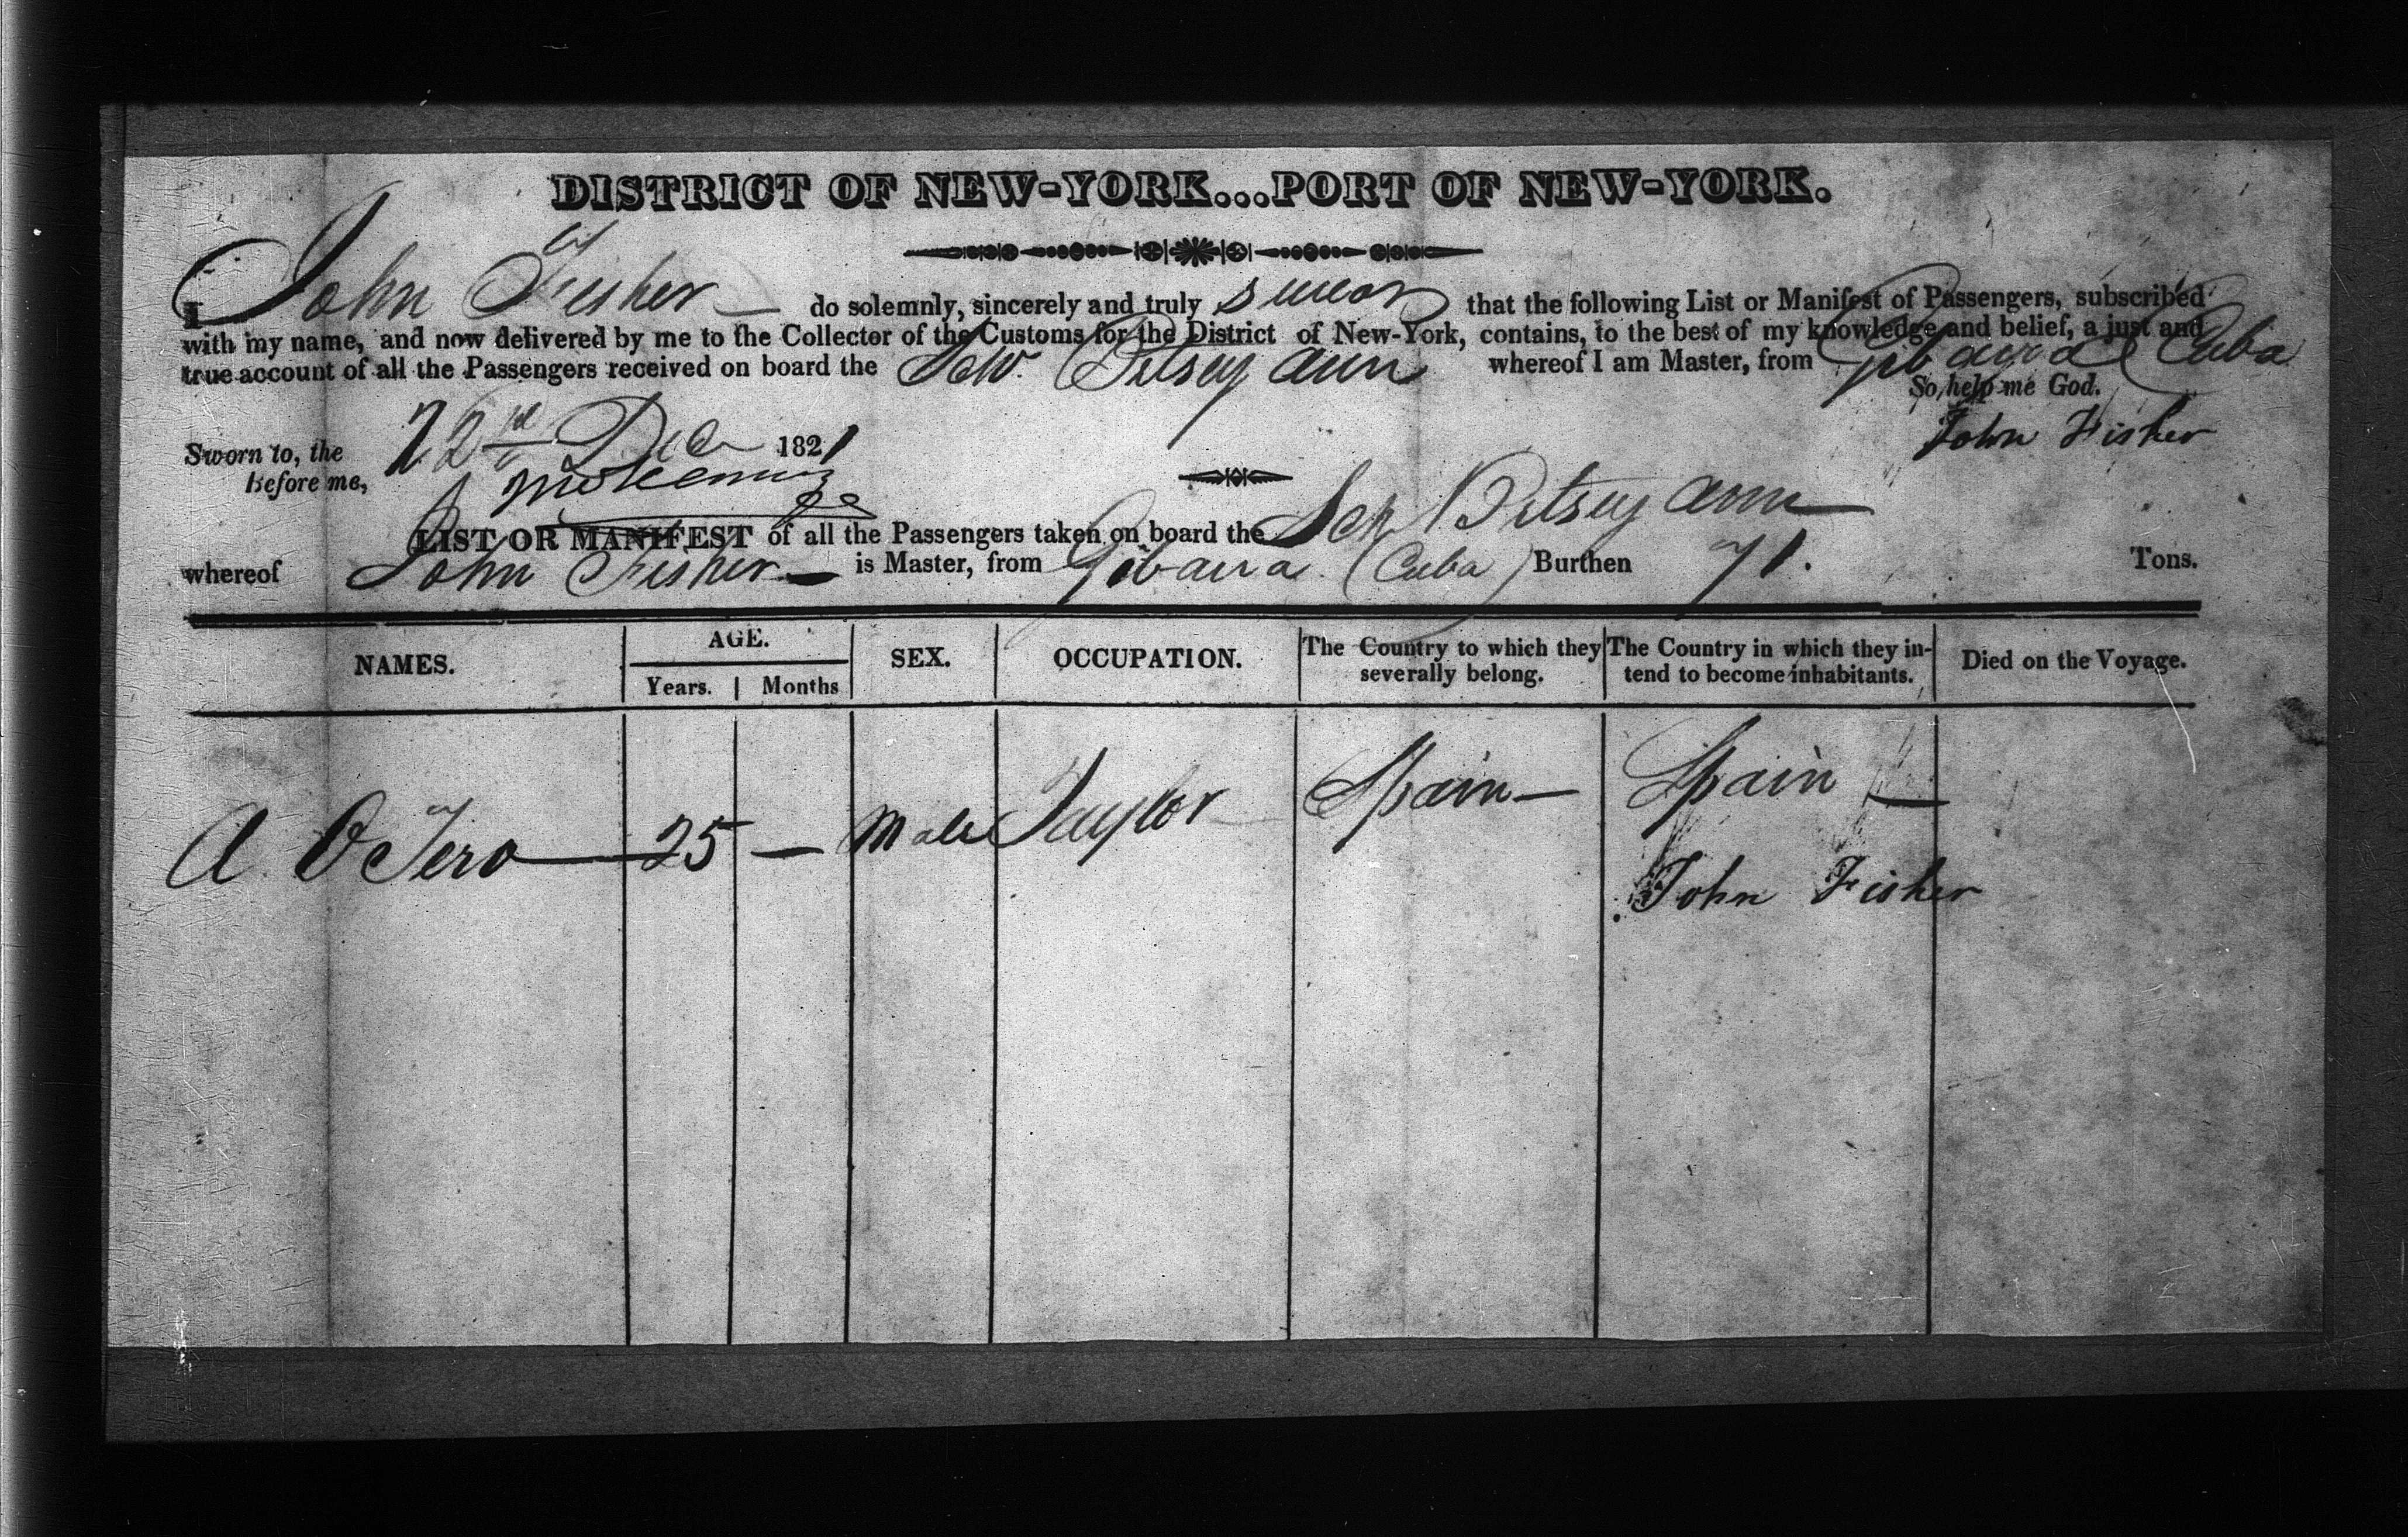 DISTRICT OF NEW-YORK...PORT OF NEW-YORK.
I John Fisher do solemnly, sincerely and truly swear that the following List or Manifest of Passengers, subscribed
with my name, and now delivered by me to the Collector of the Customs for the District of New-York, contains, to the best of my knowledge and belief, a just and
true account of all the Passengers received on board the Schr. Betsey Ann whereof I am Master, from Gibara Cuba
So help me God.
Sworn to, the 22nd Dec 1821 John Fisher
before me,
LIST OR MANIFEST of all the Passengers taken on board the Sch Betsey Ann
whereof John Fisher is Master, from Gibarra (Cuba) Burthen 71. Tons.
NAMES. AGE. SEX. OCCUPATION. The Country to which they severally belong. The Country in which they intend to become inhabitants. Died on the Voyage.
Years. Months
A. OTero 25 — Male Taylor Spain — Spain —
John Fisher